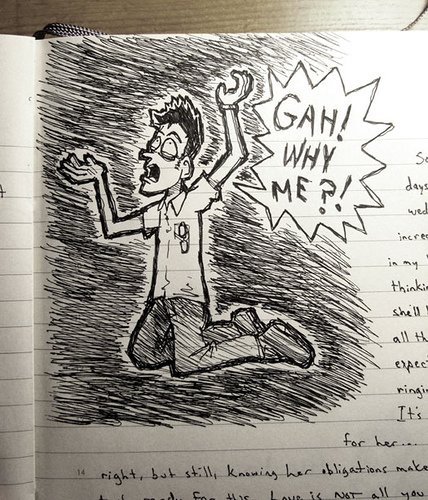 GAH!
WHY
ME?!
So
days
wed
incre
in my
thinkin
she'll
all th
expec
ringin
It's
for her...
14
right, but still, knowing her obligations make
for this. Love is NOT all you